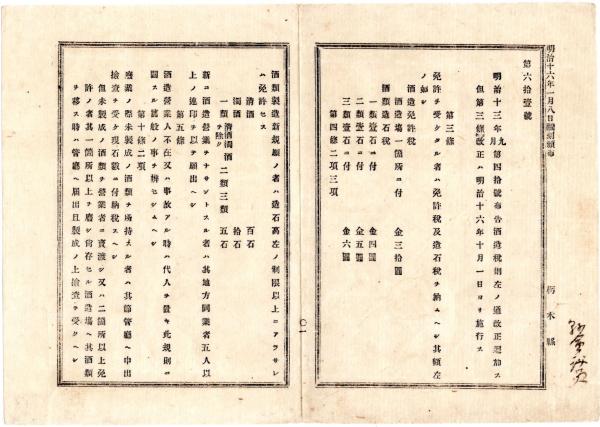 明治十六年一月八日翻刻頒布
栃木縣
第六拾壹號
明治十三年九月第四拾號布告酒造稅則左ノ通改正追加ス
但第三條改正ハ明治十六年十月一日ヨリ施行ス
第三條
免許ヲ受クタル者ハ免許稅及造石稅ヲ納ムヘシ其額左ノ如シ
酒造免許稅
酒造場一箇所ニ付 金三拾圓
酒類造石稅
一類壹石ニ付 金四圓
二類壹石ニ付 金五圓
三類壹石ニ付 金六圓
第四條二項三項
〇一
酒類製造新規願ノ者ハ造石高左ノ制限以上ニアラサレハ免許セス
清酒 百石
濁酒 拾石
一類清酒濁酒ヲ除ク二類三類 五石
新ニ酒造營業ヲナサントスル者ハ其地方同業者五人以上ノ連印ヲ以テ願出ヘシ
第五條
酒造營業人不在又ハ事故アル時ハ代人ヲ置キ此規則ニ關スル諸般ノ事ヲ辨セシムヘシ
第十條二項
廢業ノ際未製成ノ酒類ヲ所持スル者ハ其節管廳ヘ申出檢查ヲ受ケ現石數ニ付納稅スヘシ
但未製成ノ酒類ヲ營業者ニ賣渡シ又ハ二箇所以上免許ノ者其一箇所以上ヲ廢シ尙存セル酒造場ヘ其酒類ヲ移ス時ハ管廳ヘ屆出且製成ノ上檢查ヲ受クヘシ